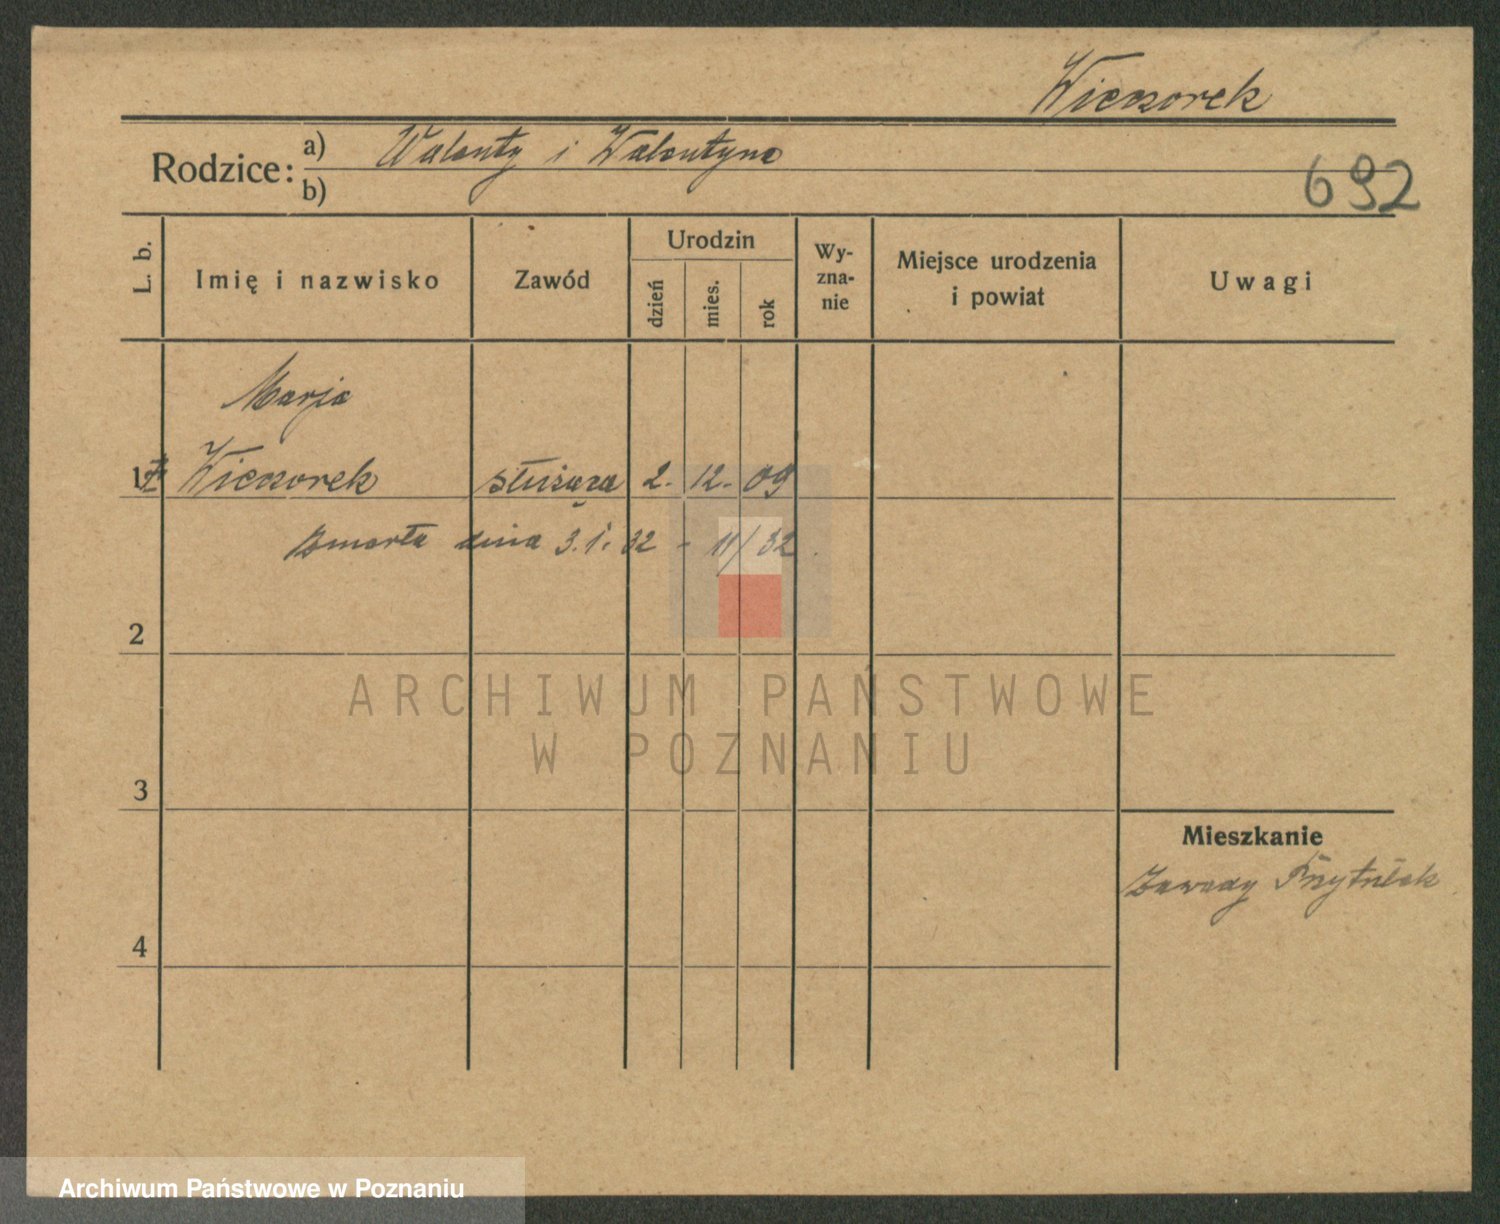 Wieczorek
Rodzice: a) Walenty i Walentyna
b)
692
L. b.
Imię i nazwisko
Zawód
Urodzin
dzień
mies.
rok
Wy-
zna-
nie
Miejsce urodzenia
i powiat
Uwagi
Marja
1 Wieczorek służąca 2. 12. 09
zmarła dnia 3.1.32 - 11/32.
2
ARCHIWUM PAŃSTWOWE
W POZNANIU
3
Mieszkanie
Zawady Przytułek
4
Archiwum Państwowe w Poznaniu